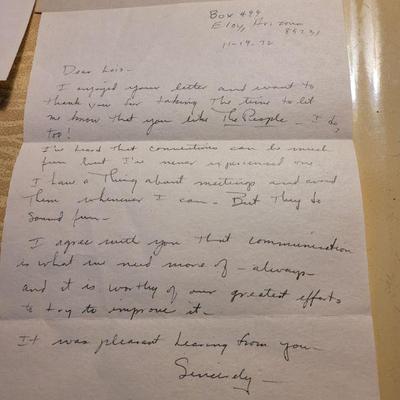 Box 499
Eloy, Arizona
85231
11-19-72
Dear Lois-
I enjoyed your letter and want to
thank you for taking the time to let
me know that you like The People - I do,
too!
I've heard that conventions can be much
fun but I've never experienced one.
I have a Thing about meetings and avoid
Them whenever I can - But They do
sound fun-
I agree with you That communication
is what we need more of - always-
and it is worthy of our greatest efforts
to try to improve it-
It was pleasant hearing from you-
Sincerely-